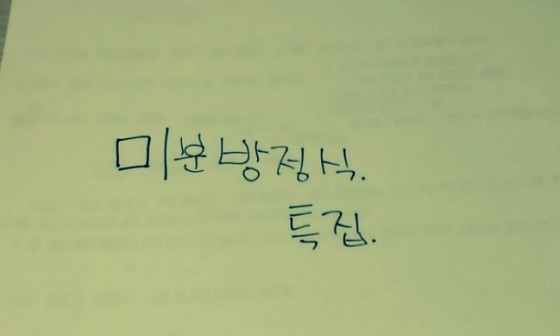 미분방정식.
특집.